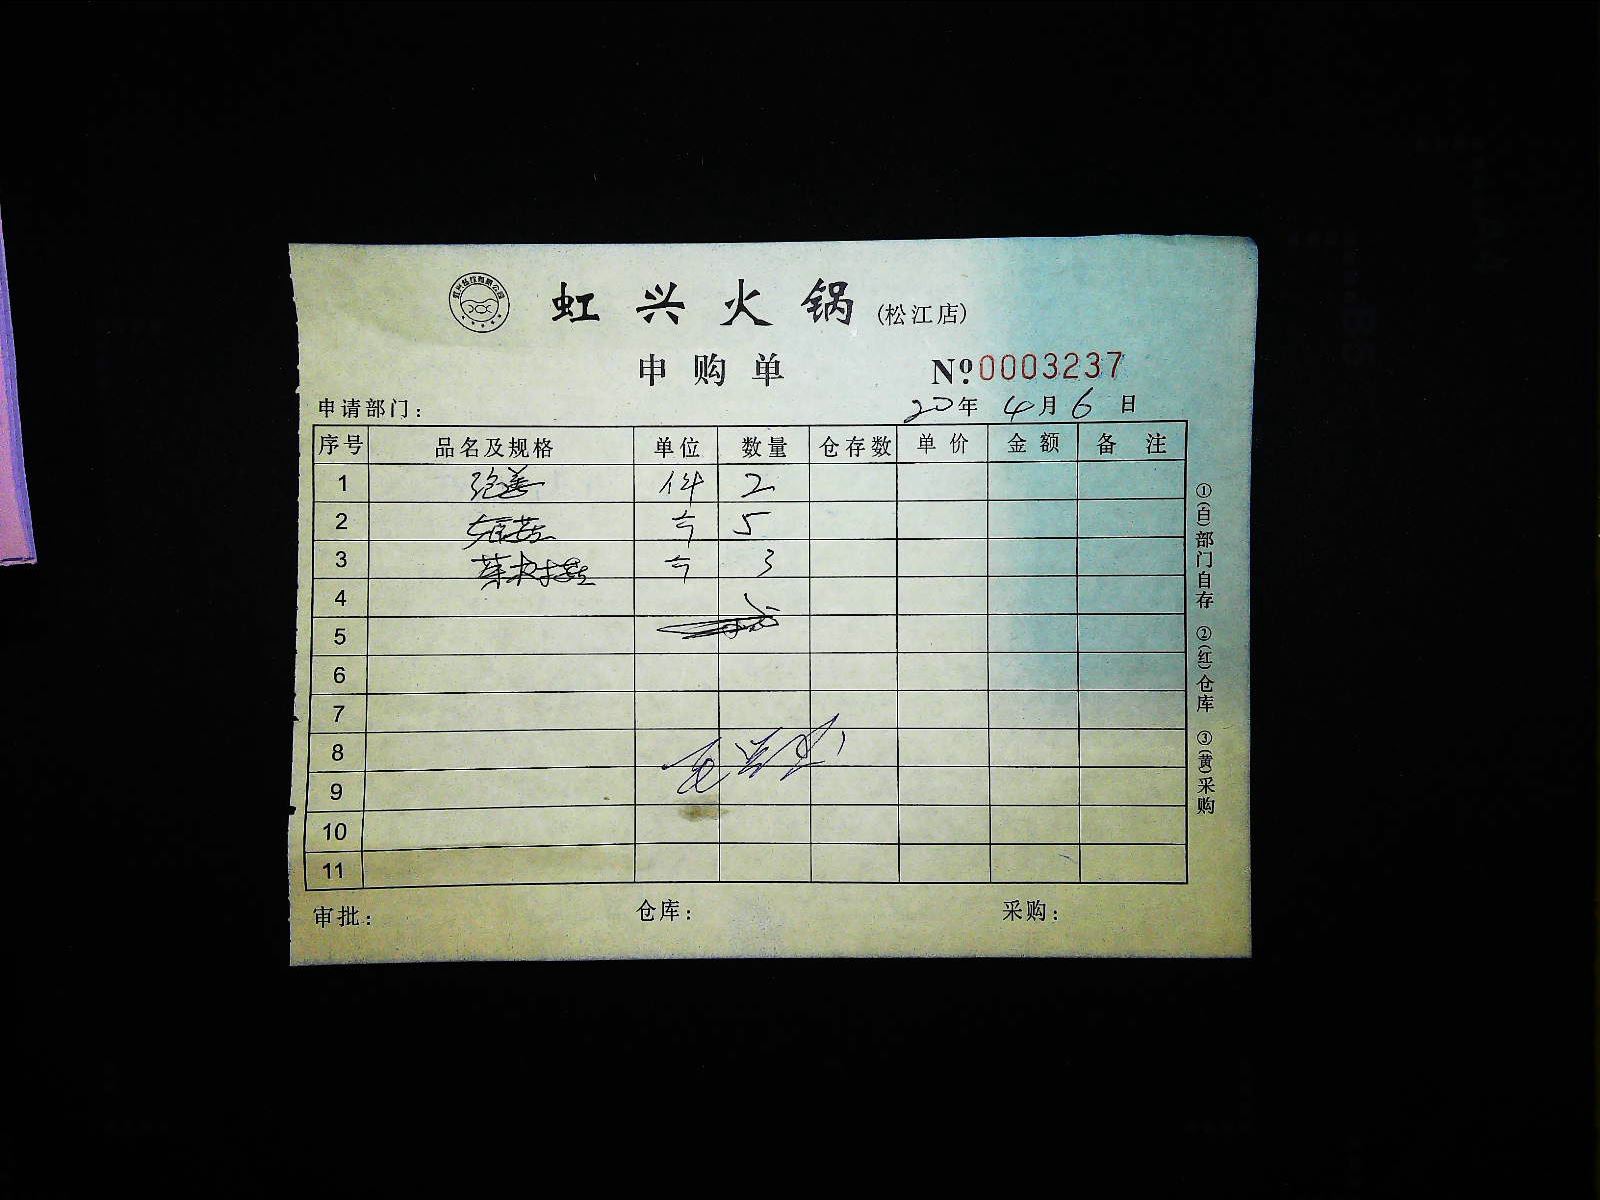 虹兴火锅(松江店)
申购单 Nº 0003237
申请部门: 20年 4月 6日
序号 品名及规格 单位 数量 仓存数 单价 金额 备注
1 件 2
2 个 5
3 个 3
4
5
6
7
8
9
10
11
审批: 仓库: 采购:
①(白)部门自存 ②(红)仓库 ③(黄)采购